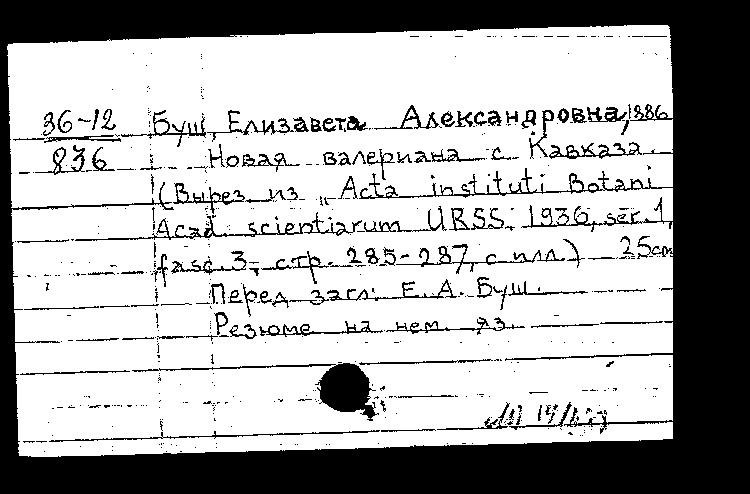 36-12 Буш, Елизавета Александровна, 1886
836 Новая валериана с Кавказа.
(Вырез. из „Acta instituti Botani
Acad. scientiarum URSS, 1936, ser. 1,
fasc. 3, стр. 285-287, с илл.) 25cm
Перед загл: Е. А. Буш.
Резюме на нем. яз.